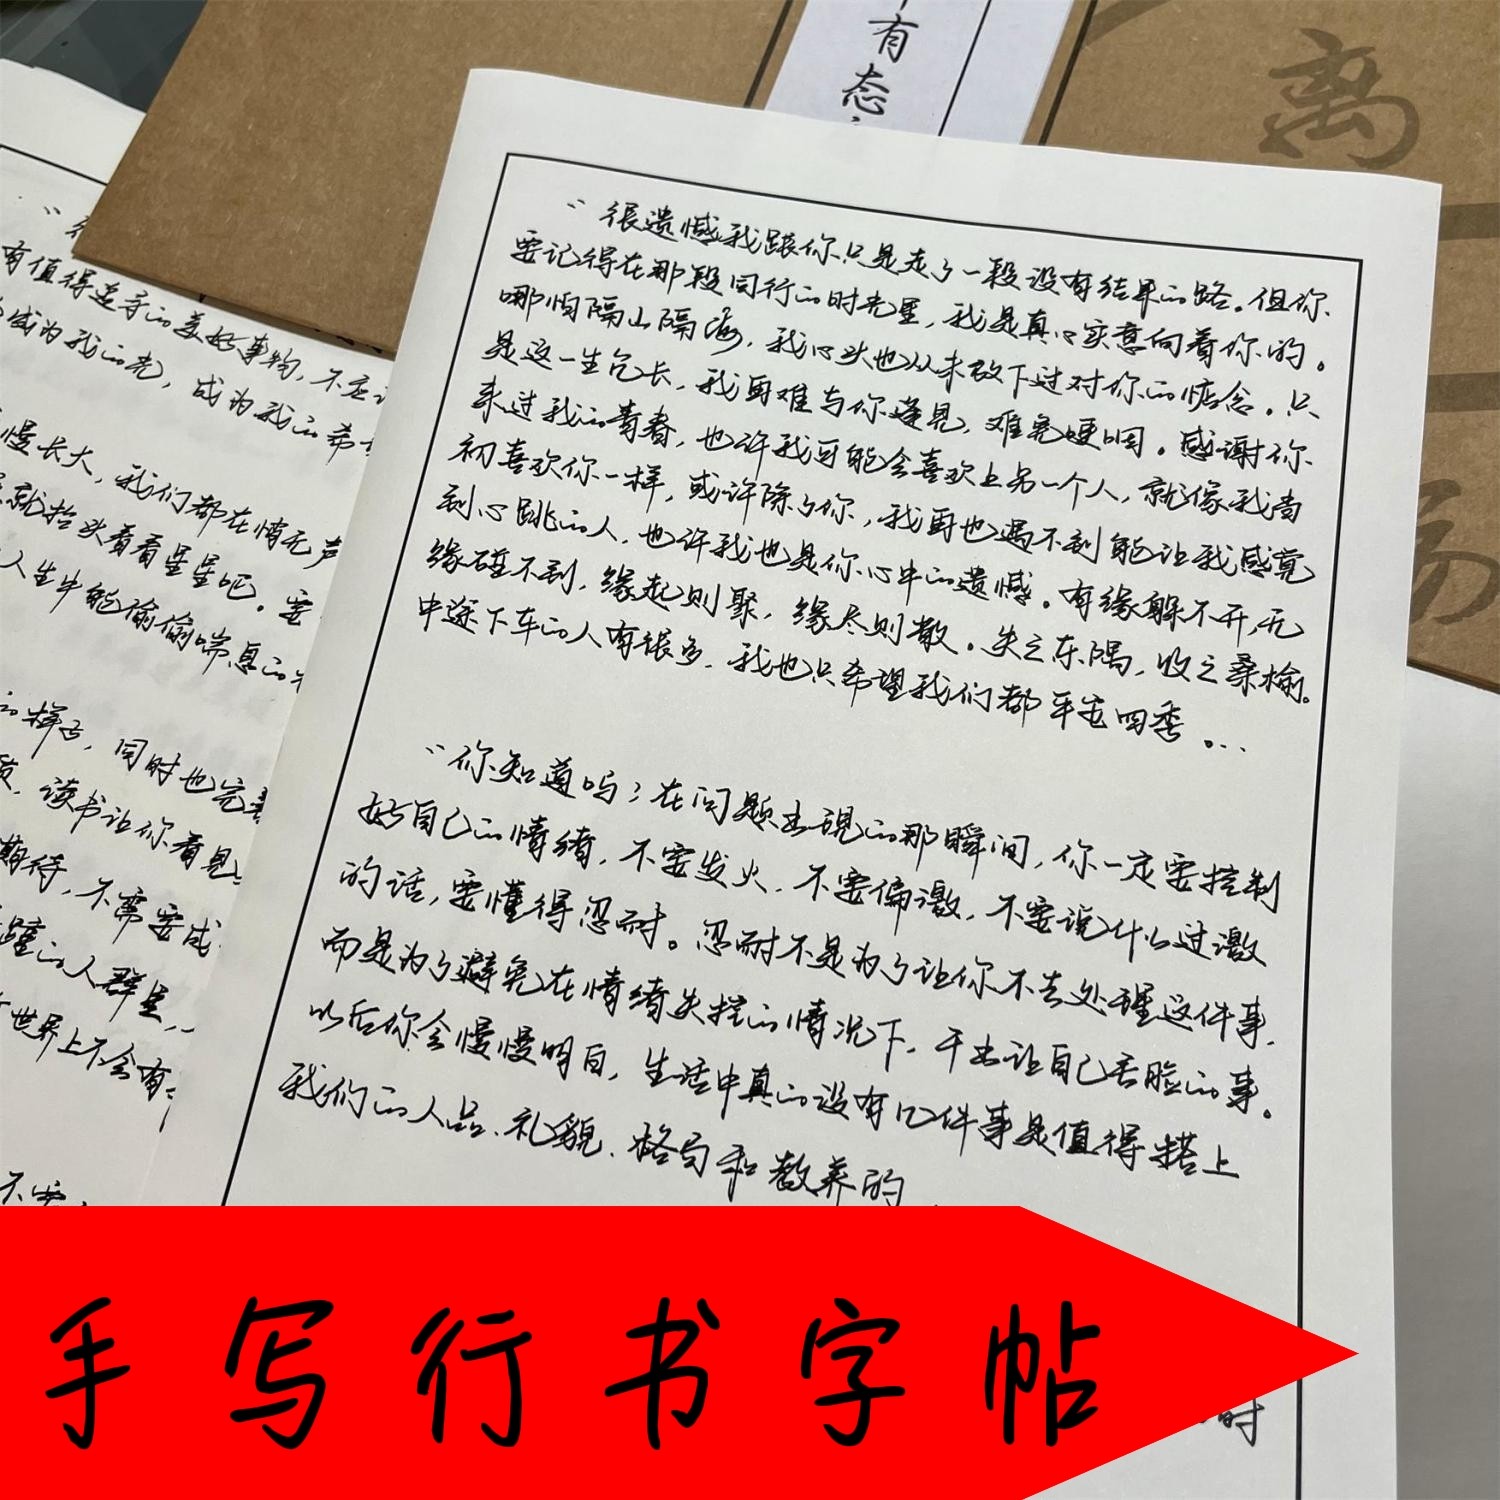 有态
离
场
“很遗憾我跟你只是走了一段没有结果的路。但你
要记得在那段同行的时光里，我是真心实意向着你的。
哪怕隔山隔海，我心头也从未放下过对你的惦念。只
是这一生冗长，我再难与你逢见，难免哽咽。感谢你
来过我的青春，也许我可能会喜欢上另一个人，就像我当
初喜欢你一样，或许除了你，我再也遇不到能让我感觉
到心跳的人，也许我也是你心中的遗憾。有缘躲不开，无
缘碰不到，缘起则聚，缘尽则散。失之东隅，收之桑榆。
中途下车的人有很多，我也只希望我们都平安四季。…
“你知道吗？在问题出现的那瞬间，你一定要控制
好自己的情绪，不要发火，不要偏激，不要说什么过激
的话，要懂得忍耐。忍耐不是为了让你不去处理这件事，
而是为了避免在情绪失控的情况下，干出让自己丢脸的事。
以后你会慢慢明白，生活中真的没有几件事是值得搭上
我们的人品、礼貌、格局和教养的
时
有值得追寻的美好事物，不应
成为我的光，成为我的希
慢长大，我们都在悄无声
就抬头看看星星吧。要
人生中能偷偷喘息的
的样子，同时也完善
读书让你看见
期待，不需要成
的人群里，
世界上不会有
不安
手写行书字帖